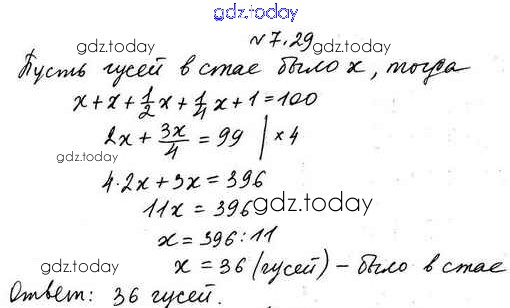 gdz.today
№7.29
gdz.today gdz.today
Пусть гусей в стае было x, тогда
x+x+1/2x+1/4x+1=100
2x+3x/4=99 |×4
gdz.today
4·2x+3x=396
11x=396
gdz.today
x=396:11
x=36 (гусей) – было в стае
gdz.today
Ответ: 36 гусей.